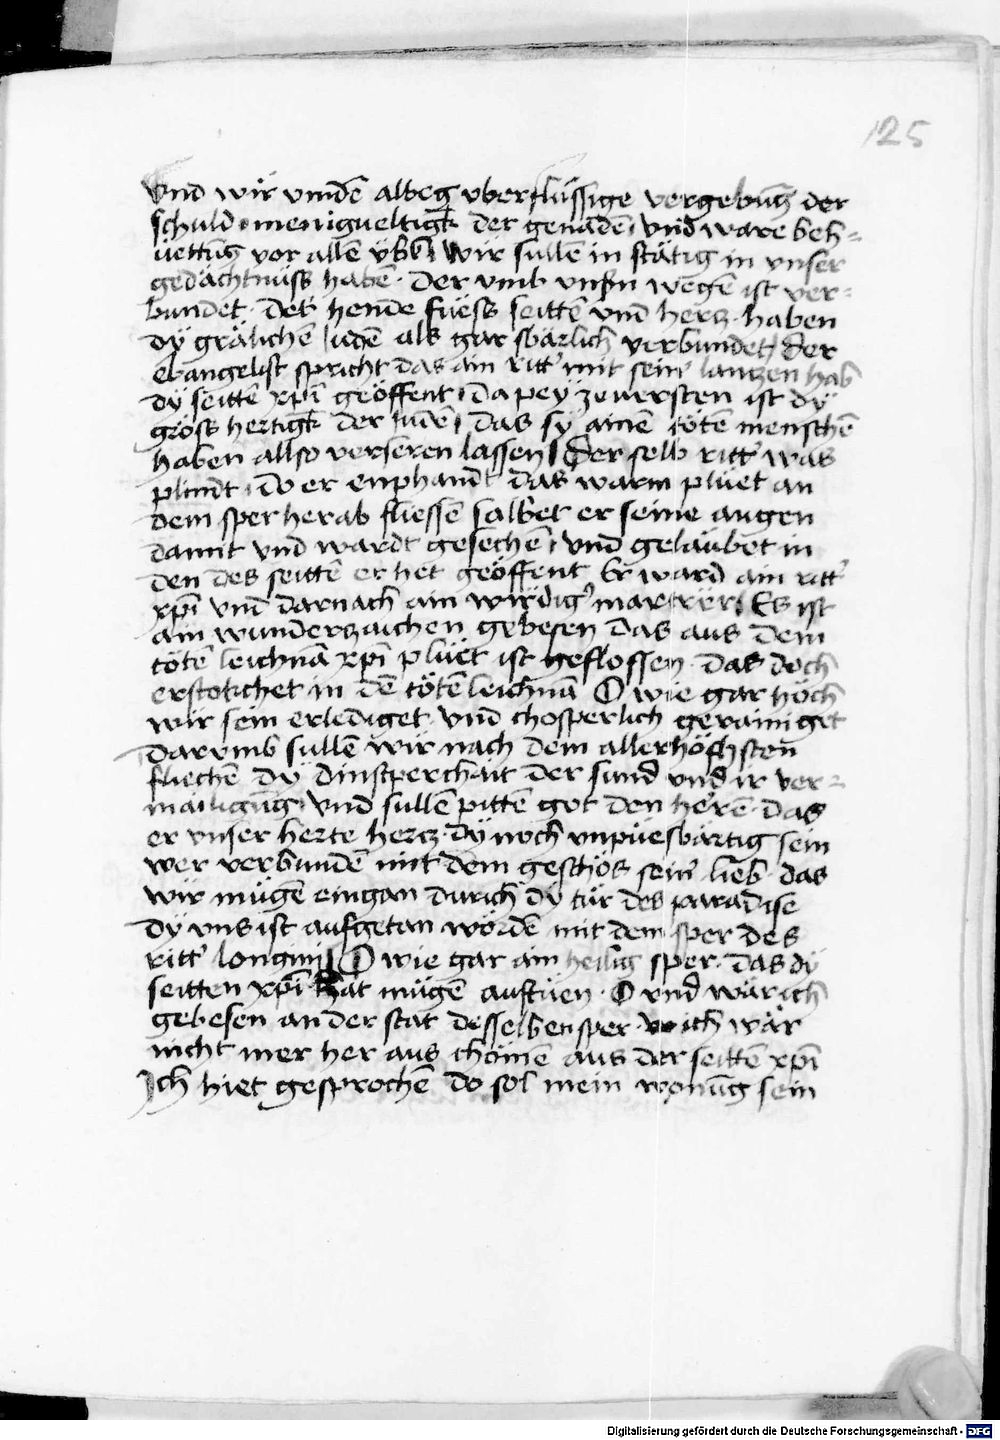 125
Vnd wir vindē albeg vberflüssige vergebūg der
schuld · menigueltigk̄ der genadē vnd ware beh=
üettūg vor allen vbl̄ Wir sullē in stätig in vnser
gedächtnüss habē · der vmb vnsn̄ wegē ist ver=
bundet · des hende füess seittē vnd hercz · haben
dy grälichē iudē als gar sbärlich verbundet Der
ebangelist spricht das ain ritt' mit sein' lanczen hab
dy seittē xp̄i geöffent Da pey zeuersten ist dy
gröss hertigk̄ der iudē das sy ainē tötē menschē
haben allso verseren lassen Der selb ritt' was
plindt · do er enphandt das warm plüet an
dem sper herab fliessē salbet er seine augen
damit vnd wardt gesechē · vnd gelaubet in
den des seittē er het geöffent Er ward ain ritt'
xp̄i vnd darnach ain wirdig' martrer Es ist
ain wunderzaichen gebesen das aus dem
tötē leichnā xp̄i plüet ist geflossen · das doch
erstokchet in dē tötē leichnā O wie gar höch
wir sein erlediget vnd chosperlich gerainiget
darumb sullē wir nach dem allerhöchsten
fliechē dy dinstperchait der sund vnd ir ver=
mailigūg vnd sullē pittē got den herē · das
er vnser herte hercz · dy noch vnpüesbärtig sein
wer verbundē mit dem geschos sein' lieb · das
wir mügē eingan durich dy tür des paradise
dy vns ist aufgetan wördē mit dem sper des
ritt' longini O wie gar ain heilig sper · das dy
seitten xp̄i hat mügē auftüen · O vnd wär ich
gebesen an der stat desselben sper · ich wär
nicht mer her aus chömē aus der seittē xp̄i
Ich hiet gesprochē do sol mein wonūg sein
Digitalisierung gefördert durch die Deutsche Forschungsgemeinschaft - DFG